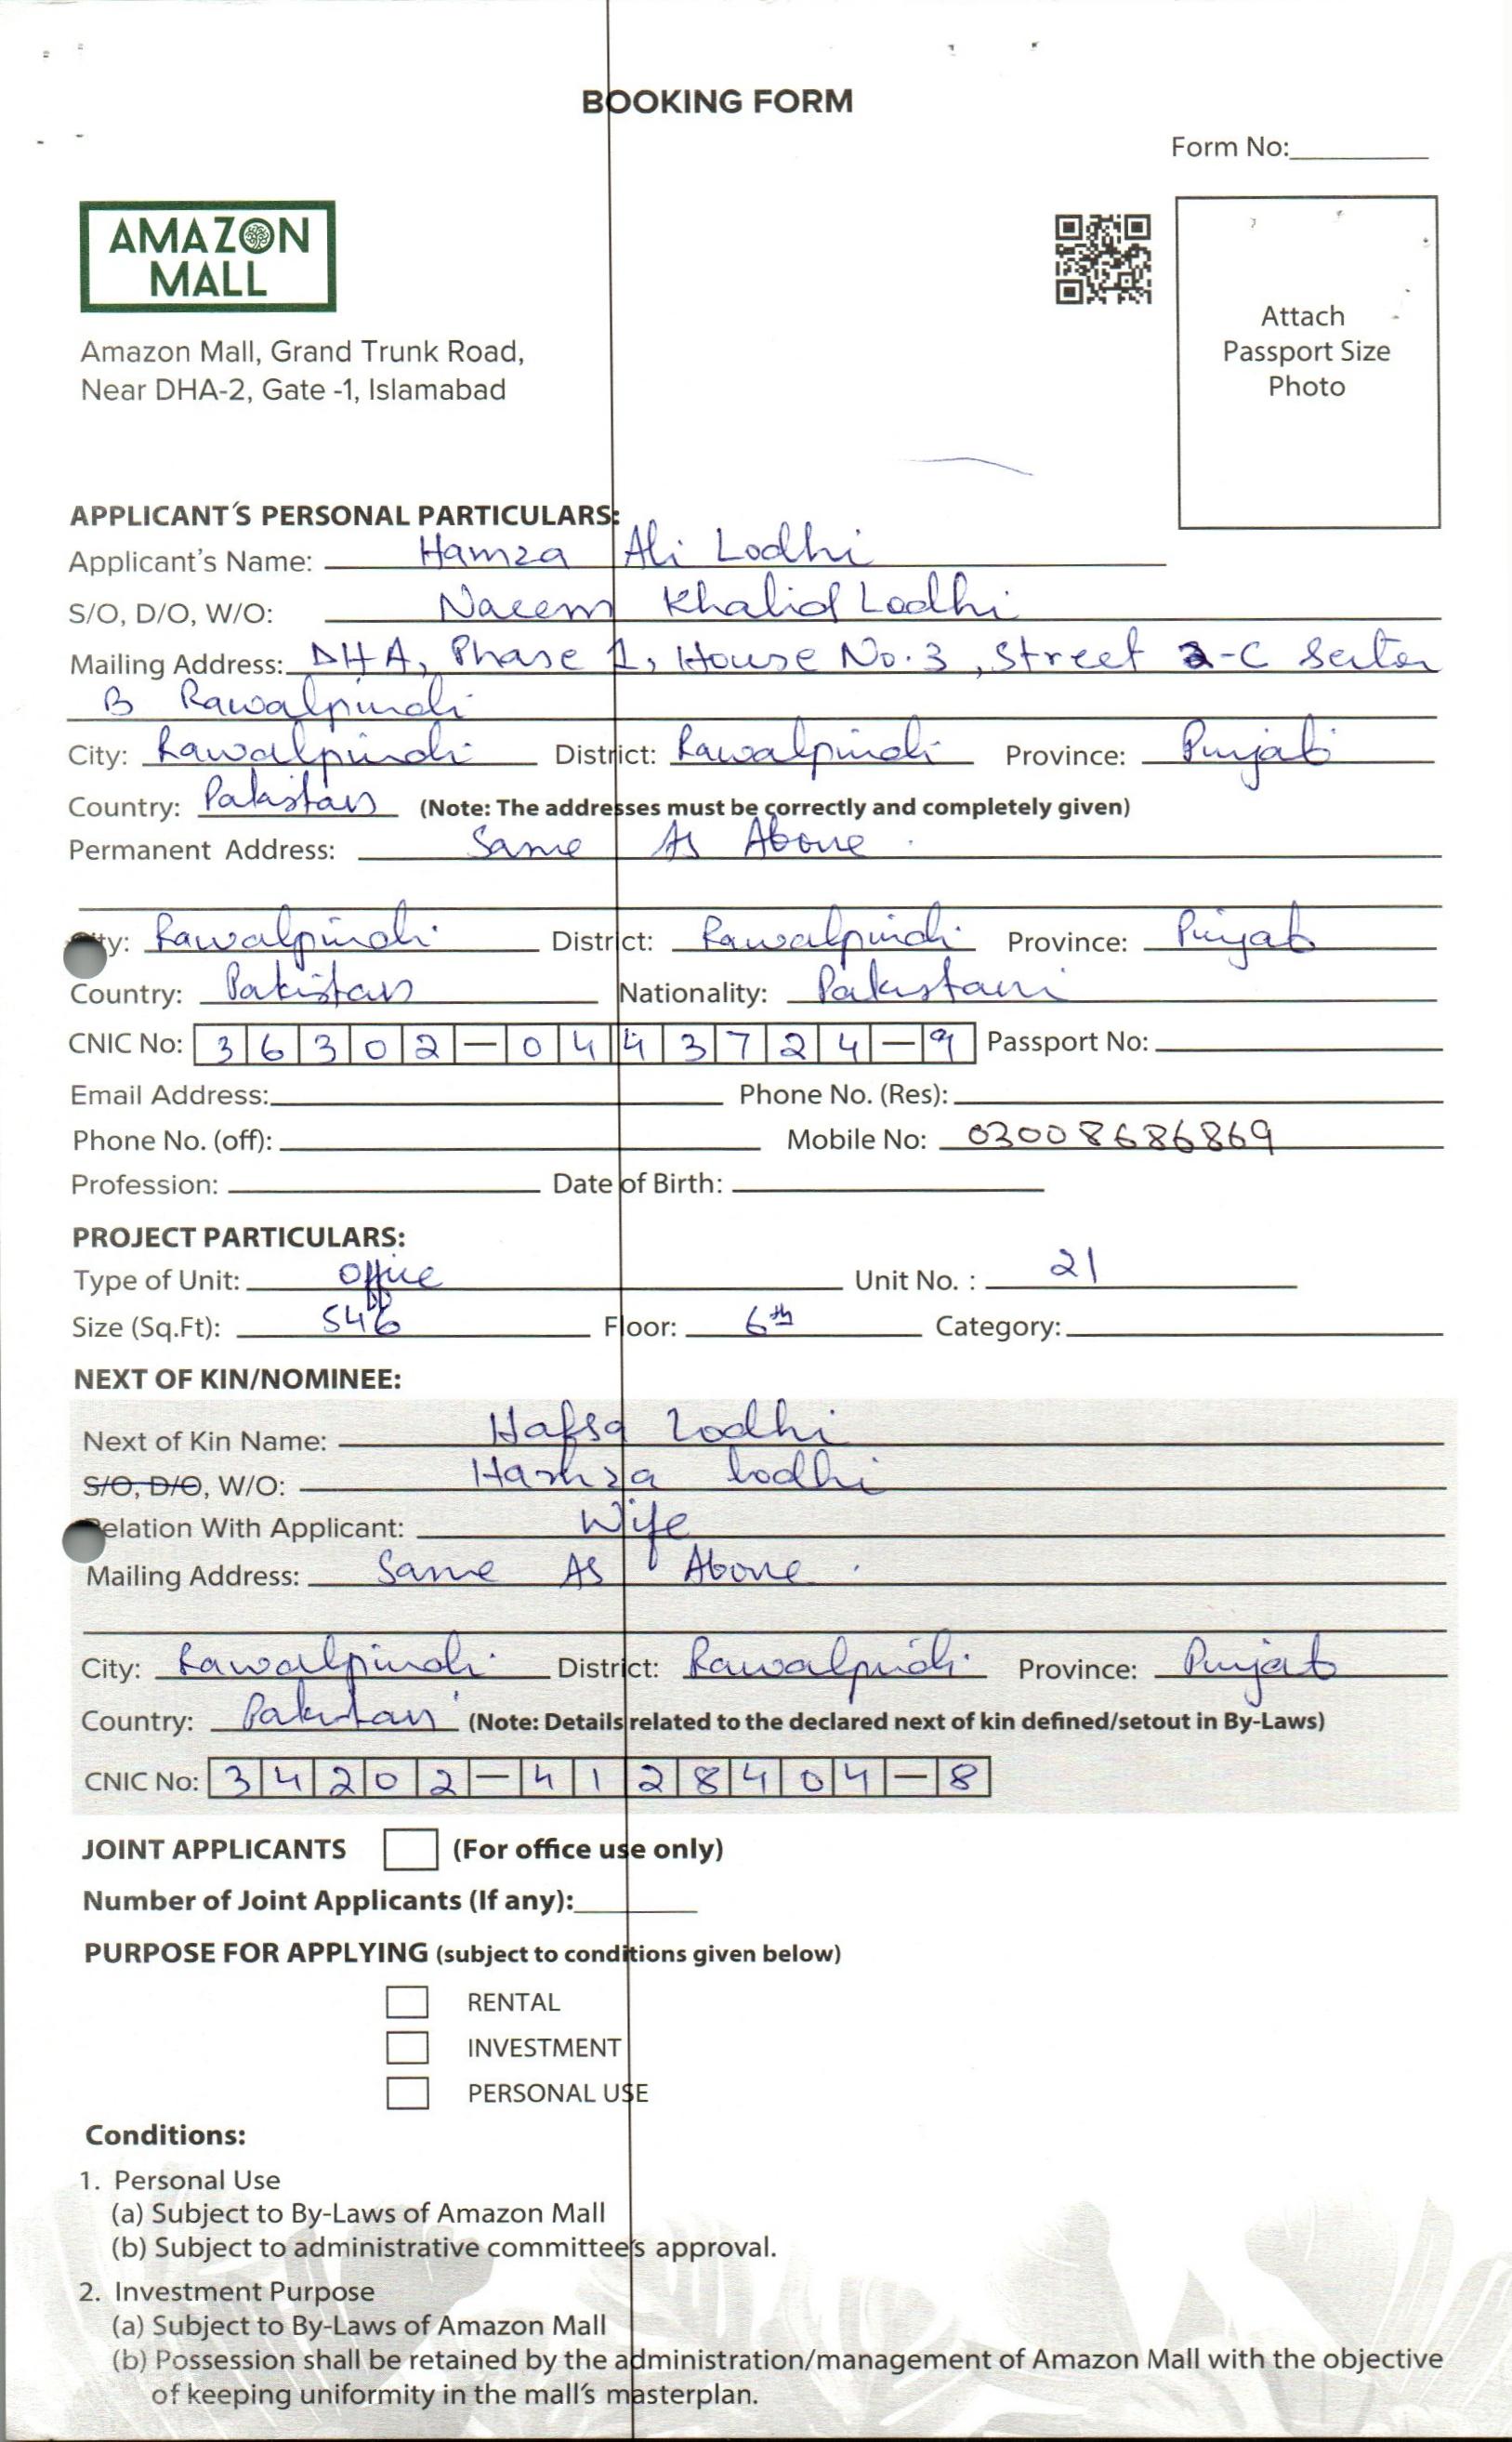 BOOKING FORM
Form No:
AMAZON
MALL
Amazon Mall, Grand Trunk Road,
Near DHA-2, Gate -1, Islamabad
Attach
Passport Size
Photo
APPLICANT'S PERSONAL PARTICULARS:
Applicant's Name: Hamza Ali Lodhi
S/O, D/O, W/O: Naeem Khalid Lodhi
Mailing Address: DHA, Phase 1, House No. 3, Street 2-C Sector
B Rawalpindi
City: Rawalpindi District: Rawalpindi Province: Punjab
Country: Pakistan (Note: The addresses must be correctly and completely given)
Permanent Address: Same As Above.
City: Rawalpindi District: Rawalpindi Province: Punjab
Country: Pakistan Nationality: Pakistani
CNIC No: 36302-0443724-9 Passport No:
Email Address: Phone No. (Res):
Phone No. (off): Mobile No: 03008686869
Profession: Date of Birth:
PROJECT PARTICULARS:
Type of Unit: Office Unit No. : 21
Size (Sq.Ft): 546 Floor: 6th Category:
NEXT OF KIN/NOMINEE:
Next of Kin Name: Hafsa Lodhi
S/O, D/O, W/O: Hamza Lodhi
Relation With Applicant: Wife
Mailing Address: Same As Above.
City: Rawalpindi District: Rawalpidi Province: Punjab
Country: Pakistan (Note: Details related to the declared next of kin defined/setout in By-Laws)
CNIC No: 34202-4128404-8
JOINT APPLICANTS (For office use only)
Number of Joint Applicants (If any):
PURPOSE FOR APPLYING (subject to conditions given below)
RENTAL
INVESTMENT
PERSONAL USE
Conditions:
1. Personal Use
(a) Subject to By-Laws of Amazon Mall
(b) Subject to administrative committee's approval.
2. Investment Purpose
(a) Subject to By-Laws of Amazon Mall
(b) Possession shall be retained by the administration/management of Amazon Mall with the objective
of keeping uniformity in the mall's masterplan.